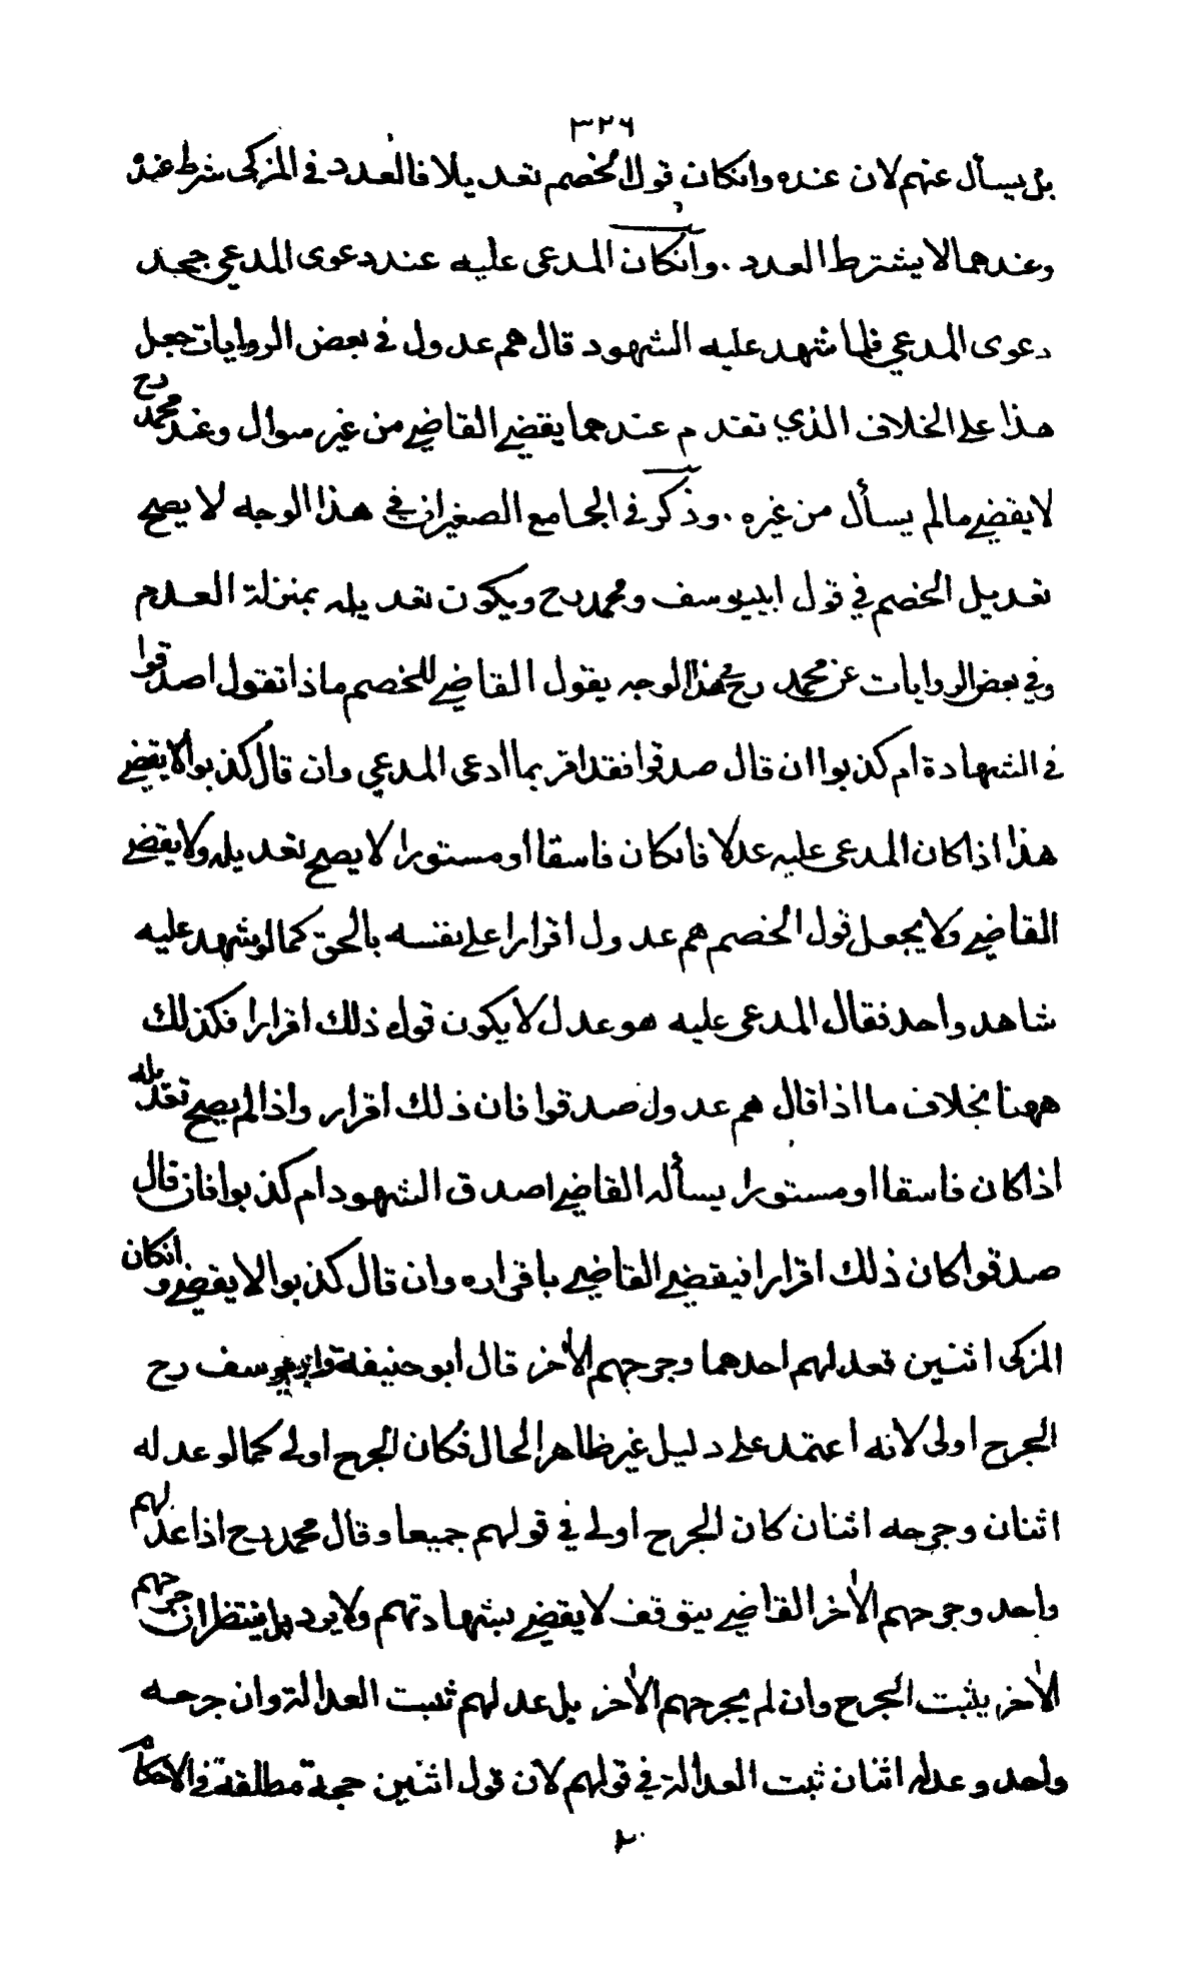 ٣٢٦
بل يسأل عنهم لان عنده وانكان قول الخصم تعديلا فالعدد في المزكى شرط عنده
وعندهما لا يشترط العدد . وانكان المدعى عليه عند دعوى المدعي جحد
دعوى المدعي فلما شهد عليه الشهود قال هم عدول في بعض الروايات جعل
هذا على الخلاف الذي تقدم عندهما يقضي القاضي من غير سوال وعند محمد رح
لا يقضي مالم يسأل من غيره . وذكر في الجامع الصغير ان في هذا الوجه لا يصح
تعديل الخصم في قول ابي يوسف ومحمد رح ويكون تعديله بمنزلة العدم
وفي بعض الروايات عن محمد رح في هذا الوجه يقول القاضي للخصم ماذا تقول اصدقوا
في الشهادة ام كذبوا ان قال صدقوا فقد اقر بما ادعى المدعي وان قال كذبوا لا يقضي
هذا اذا كان المدعى عليه عدلا فانكان فاسقا او مستورا لا يصح تعديله ولا يقضي
القاضي ولا يجعل قول الخصم هم عدول اقرارا على نفسه بالحق كما لو شهد عليه
شاهد واحد فقال المدعى عليه هو عدل لا يكون قوله ذلك اقرارا فكذلك
ههنا بخلاف ما اذا قال هم عدول صدقوا فان ذلك اقرار واذا لم يصح تعديله
اذا كان فاسقا او مستورا يسأله القاضي اصدق الشهود ام كذبوا فان قال
صدقوا كان ذلك اقرارا فيقضي القاضي باقراره وان قال كذبوا لا يقضي وانكان
المزكى اثنين فعدلهم احدهما وجرحهم الأخر قال ابو حنيفة وابو يوسف رح
الجرح اولى لانه اعتمد على دليل غير ظاهر الحال فكان الجرح اولى كما لو عدله
اثنان وجرحه اثنان كان الجرح اولى في قولهم جميعا وقال محمد رح اذا عدلهم
واحد وجرحهم الأخر القاضي يتوقف لا يقضي بشهادتهم ولا يرد بل ينتظر ان جرحهم
الأخر يثبت الجرح وان لم يجرحهم الأخر بل عدلهم ثبت العدالة وان جرحه
واحد وعدله اثنان ثبت العدالة في قولهم لان قول اثنين حجة مطلقة في الاحكام